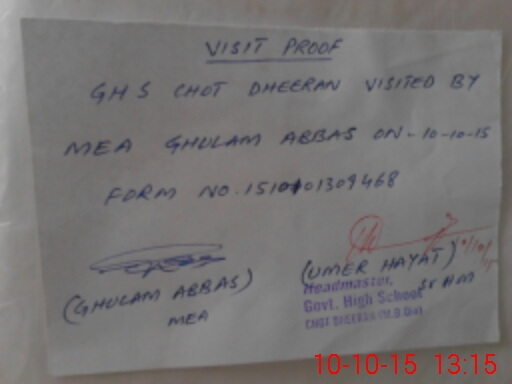 VISIT PROOF
GHS CHOT DHEERAN VISITED BY
MEA GHULAM ABBAS ON-10-10-15
FORM NO.
(GHULAM ABBAS)
MEA
(UMER HAYAT)
Headmaster,
Govt. High School
CHOT DHEERAN (M.B Din)
10-10-15 13:15